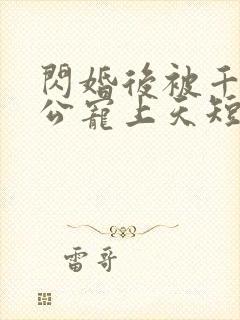 閃婚後被千
公寵上天短
雷哥